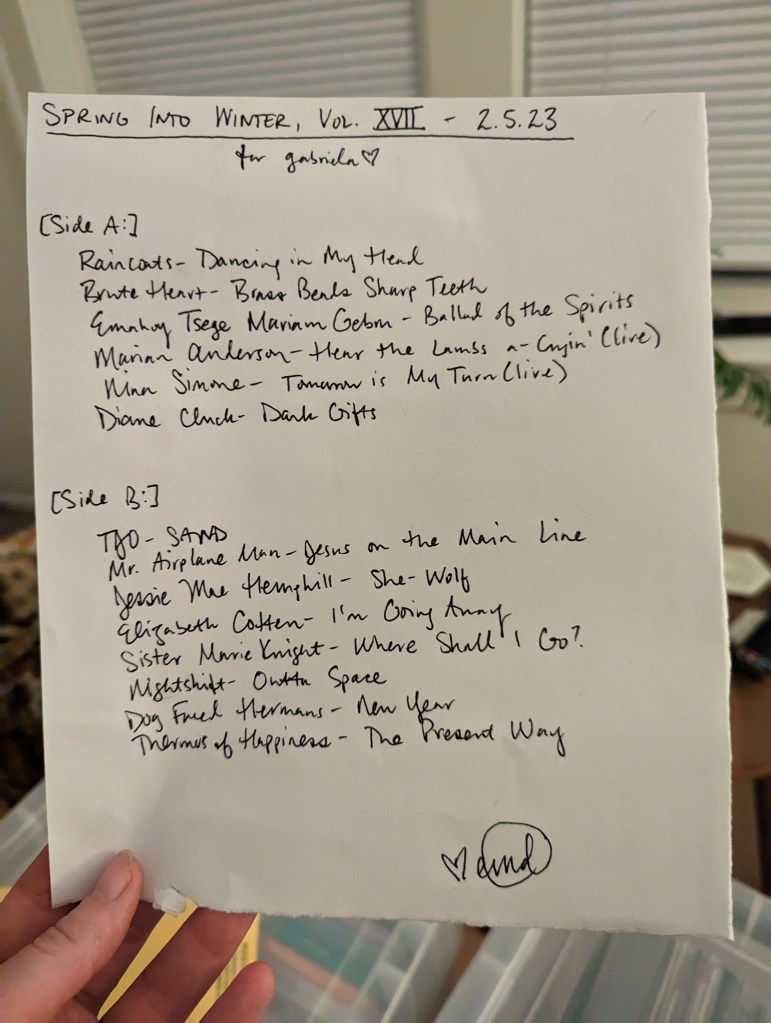 SPRING INTO WINTER, VOL. XVII - 2.5.23
for gabriela♡
[Side A:]
Raincoats - Dancing in My Head
Brute Heart - Brass Beads Sharp Teeth
Emahoy Tsege Mariam Gebru - Ballad of the Spirits
Marian Anderson - Hear the Lambs a-Cryin' (live)
Nina Simone - Tomorrow is My Turn (live)
Diane Cluck - Dark Gifts
[Side B:]
- SAND
Mr. Airplane Man - Jesus on the Main Line
Jessie Mae Hemphill - She-Wolf
Elizabeth Cotten - I'm Going Away
Sister Marie Knight - Where Shall I Go?
Nightshift - Outta Space
Dog Faced Hermans - New Year
Thermos of Happiness - The Present Way
♡ dmd